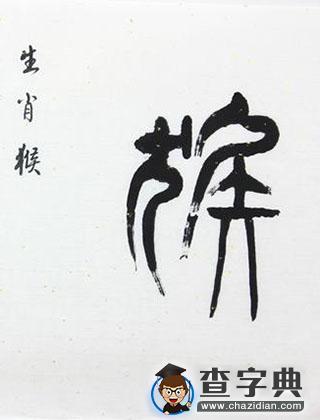 猴
生肖猴
查字典
www.chazidian.com